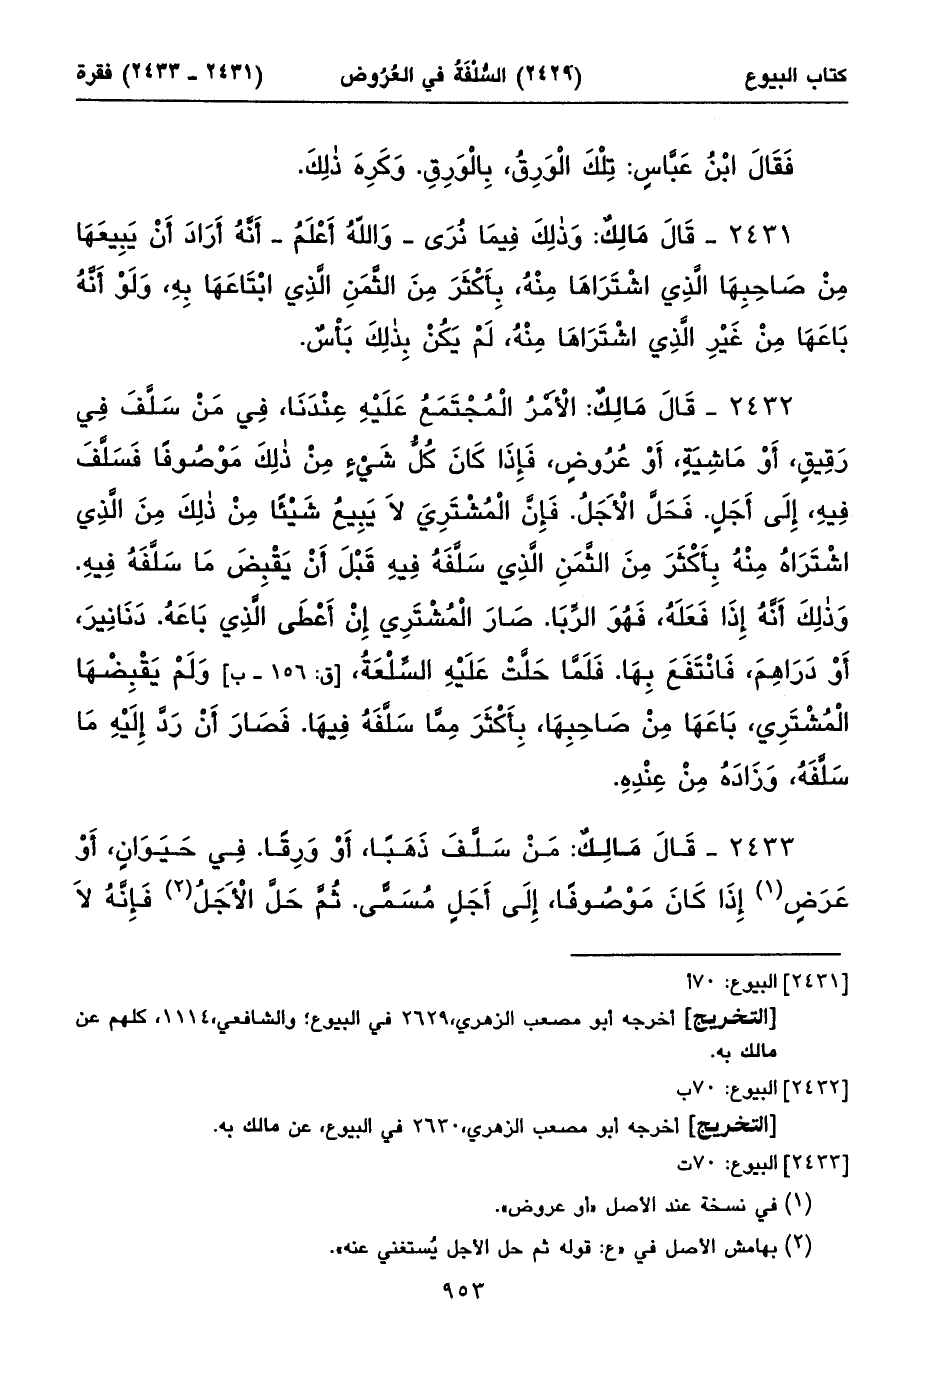 كتاب البيوع (٢٤٢٩) السُّلْفَةُ في العُرُوض (٢٤٣١ ـ ٢٤٣٣) فقرة
فَقَالَ ابْنُ عَبَّاسٍ: تِلْكَ الْوَرِقُ، بِالْوَرِقِ. وَكَرِهَ ذٰلِكَ.
٢٤٣١ ـ قَالَ مَالِكٌ: وَذٰلِكَ فِيمَا نُرَى ـ وَاللّهُ أَعْلَمُ ـ أَنَّهُ أَرَادَ أَنْ يَبِيعَهَا
مِنْ صَاحِبِهَا الَّذِي اشْتَرَاهَا مِنْهُ، بِأَكْثَرَ مِنَ الثَّمَنِ الَّذِي ابْتَاعَهَا بِهِ، وَلَوْ أَنَّهُ
بَاعَهَا مِنْ غَيْرِ الَّذِي اشْتَرَاهَا مِنْهُ، لَمْ يَكُنْ بِذٰلِكَ بَأْسٌ.
٢٤٣٢ ـ قَالَ مَالِكٌ: الْأَمْرُ الْمُجْتَمَعُ عَلَيْهِ عِنْدَنَا، فِي مَنْ سَلَّفَ فِي
رَقِيقٍ، أَوْ مَاشِيَةٍ، أَوْ عُرُوضٍ، فَإِذَا كَانَ كُلُّ شَيْءٍ مِنْ ذٰلِكَ مَوْصُوفًا فَسَلَّفَ
فِيهِ، إِلَى أَجَلٍ. فَحَلَّ الْأَجَلُ. فَإِنَّ الْمُشْتَرِيَ لاَ يَبِيعُ شَيْئًا مِنْ ذٰلِكَ مِنَ الَّذِي
اشْتَرَاهُ مِنْهُ بِأَكْثَرَ مِنَ الثَّمَنِ الَّذِي سَلَّفَهُ فِيهِ قَبْلَ أَنْ يَقْبِضَ مَا سَلَّفَهُ فِيهِ.
وَذٰلِكَ أَنَّهُ إِذَا فَعَلَهُ، فَهُوَ الرِّبَا. صَارَ الْمُشْتَرِي إِنْ أَعْطَى الَّذِي بَاعَهُ. دَنَانِيرَ،
أَوْ دَرَاهِمَ، فَانْتَفَعَ بِهَا. فَلَمَّا حَلَّتْ عَلَيْهِ السِّلْعَةُ، [ق: ١٥٦ ـ ب] وَلَمْ يَقْبِضْهَا
الْمُشْتَرِي، بَاعَهَا مِنْ صَاحِبِهَا، بِأَكْثَرَ مِمَّا سَلَّفَهُ فِيهَا. فَصَارَ أَنْ رَدَّ إِلَيْهِ مَا
سَلَّفَهُ، وَزَادَهُ مِنْ عِنْدِهِ.
٢٤٣٣ ـ قَالَ مَالِكٌ: مَنْ سَلَّفَ ذَهَبًا، أَوْ وَرِقًا. فِي حَيَوَانٍ، أَوْ
عَرَضٍ(١) إِذَا كَانَ مَوْصُوفًا، إِلَى أَجَلٍ مُسَمًّى. ثُمَّ حَلَّ الْأَجَلُ(٢) فَإِنَّهُ لاَ
[٢٤٣١] البيوع: ٧٠أ
[التخريج] أخرجه أبو مصعب الزهري،٢٦٢٩ في البيوع؛ والشافعي،١١١٤، كلهم عن
مالك به.
[٢٤٣٢] البيوع: ٧٠ب
[التخريج] أخرجه أبو مصعب الزهري،٢٦٣٠ في البيوع، عن مالك به.
[٢٤٣٣] البيوع: ٧٠ت
(١) في نسخة عند الأصل «أو عروض».
(٢) بهامش الأصل في «ع: قوله ثم حل الأجل يُستغني عنه».
٩٥٣